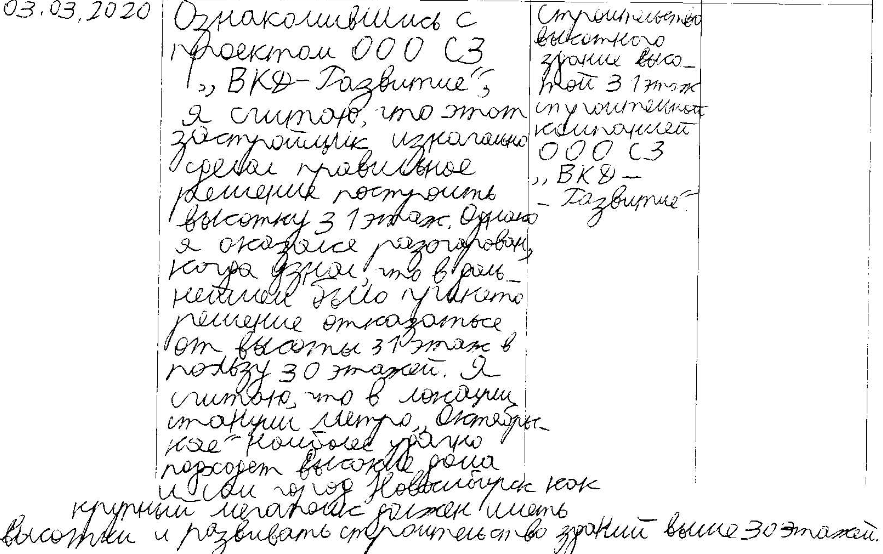 03.03.2020
Ознакомившись с
проектом ООО СЗ
„ВКД-Развитие“,
я считаю, что этот
застройщик изначально
сделал правильное
решение построить
высотку 31 этаж. Однако
я оказался разочарован,
когда узнал, что в даль-
нейшем было принято
решение отказаться
от высоты 31 этаж в
пользу 30 этажей. Я
считаю, что в локации
станции метро „Октябрь-
ская“ наиболее удачно
подходят высокие дома
и сам город Новосибирск как
крупный мегаполис должен иметь
высотки и развивать строительство зданий выше 30 этажей.
Строительство
высотного
здания высо-
той 31 этаж
строительной
компанией
ООО СЗ
„ВКД-
- Развитие“.